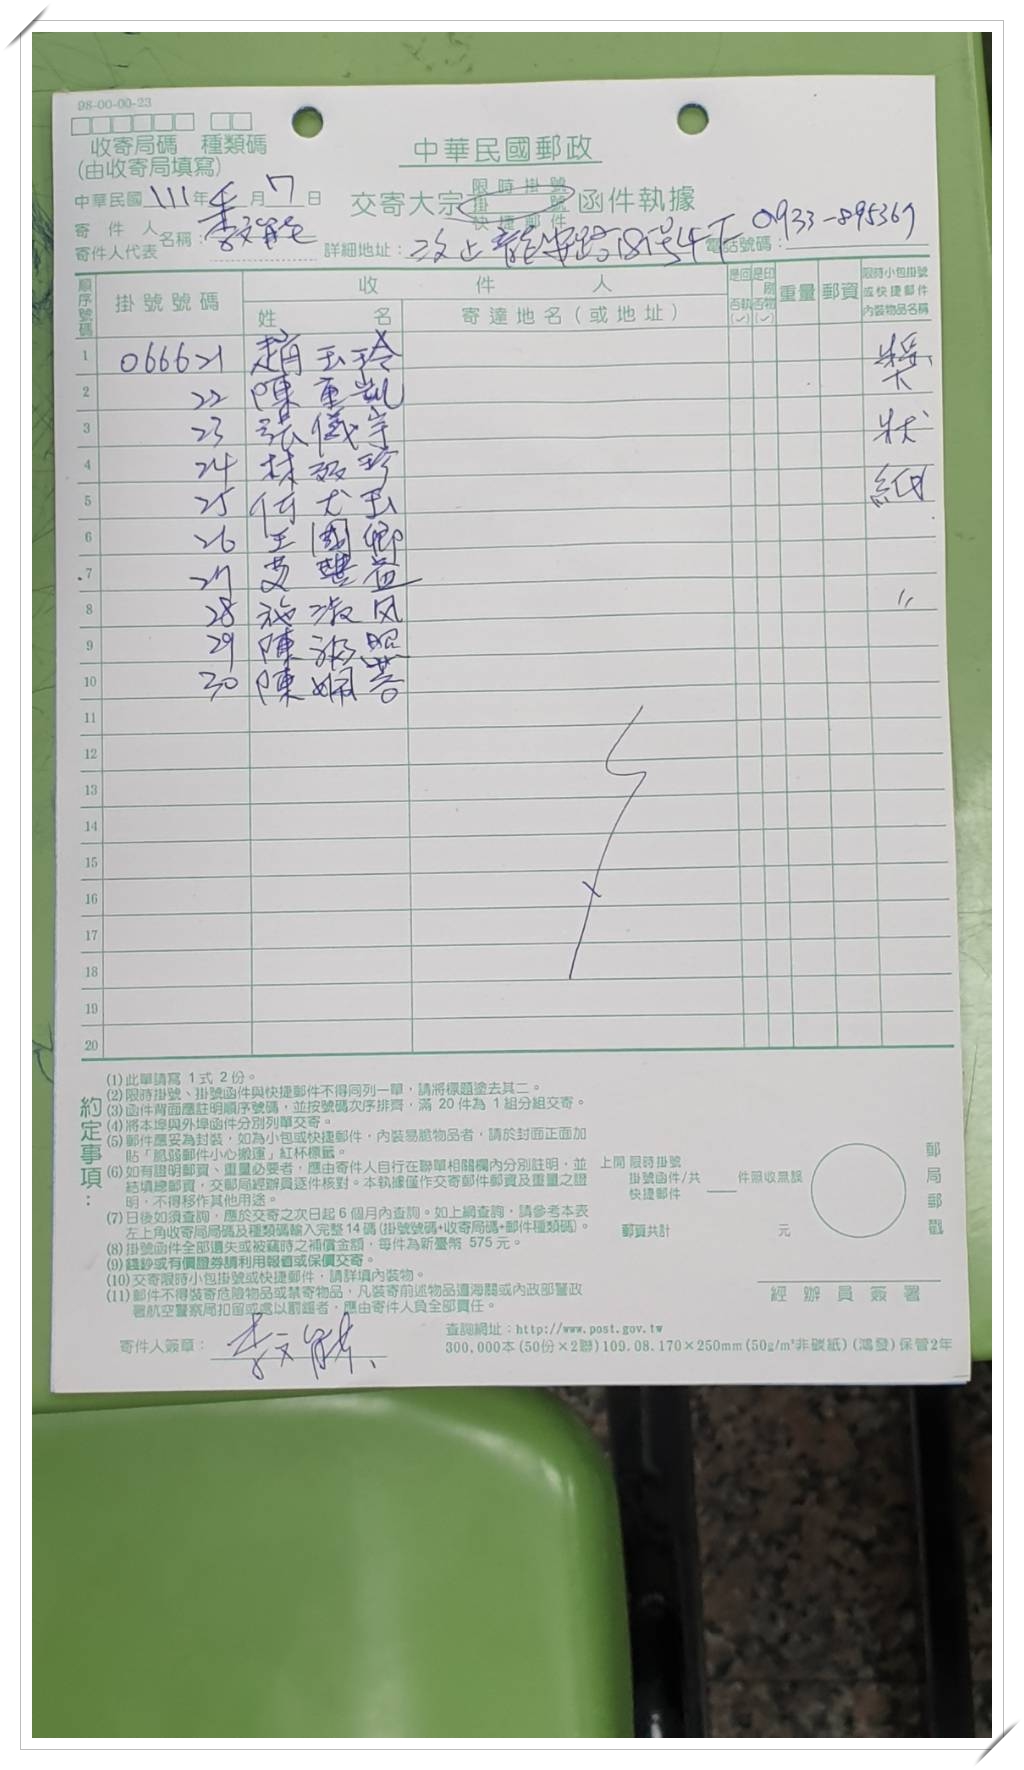 98-00-00-23
收寄局碼 種類碼
(由收寄局填寫)
中華民國郵政
中華民國 111 年 月 7 日
交寄大宗 限時掛號 掛號 快捷郵件 函件執據
寄件人
寄件人代表 名稱： 李文
詳細地址： 汐止龍安路 電話號碼： 0933-895369
順序號碼 掛號號碼 收件人 是否回執(✓) 是否印刷物(✓) 重量 郵資 限時小包掛號或快捷郵件內裝物品名稱
姓名 寄達地名(或地址)
1 066621 趙玉玲 獎
2 22 陳重凱
3 23 張儀宇 狀
4 24 林 珍
5 25 玉 紙
6 26 王國卿
7 27 益
8 28 施淑凤 〃
9 29 陳 照
10 30 陳
11
12
13
14
15
16
17
18
19
20
約定事項：
(1)此單請寫 1 式 2 份。
(2)限時掛號、掛號函件與快捷郵件不得同列一單，請將標題塗去其二。
(3)函件背面應註明順序號碼，並按號碼次序排齊，滿 20 件為 1 組分組交寄。
(4)將本埠與外埠函件分別列單交寄。
(5)郵件應妥為封裝，如為小包或快捷郵件，內裝易脆物品者，請於封面正面加
貼「脆弱郵件小心搬運」紅杯標籤。
(6)如有證明郵資、重量必要者，應由寄件人自行在聯單相關欄內分別註明，並
結填總郵資，交郵局經辦員逐件核對。本執據僅作交寄郵件郵資及重量之證
明，不得移作其他用途。
(7)日後如須查詢，應於交寄之次日起 6 個月內查詢。如上網查詢，請參考本表
左上角收寄局局碼及種類碼輸入完整 14 碼 (掛號號碼+收寄局碼+郵件種類碼)。
(8)掛號函件全部遺失或被竊時之補償金額，每件為新臺幣 575 元。
(9)錢鈔或有價證券請利用報值或保價交寄。
(10)交寄限時小包掛號或快捷郵件，請詳填內裝物。
(11)郵件不得裝寄危險物品或禁寄物品，凡裝寄前述物品遭海關或內政部警政
署航空警察局扣留或處以罰鍰者，應由寄件人負全部責任。
上開 限時掛號 掛號函件/共 快捷郵件 件照收無誤
郵資共計 元
郵局郵戳
經辦員簽署
寄件人簽章： 李文
查詢網址：http://www.post.gov.tw
300,000本(50份×2聯)109.08.170×250mm(50g/m²非碳紙)(鴻發)保管2年